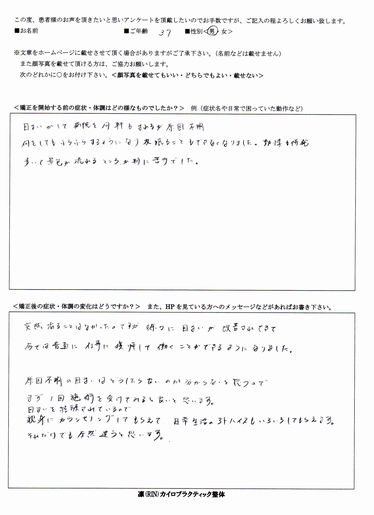 この度、患者様のお声を頂きたいと思いアンケートを頂戴したいのでお手数ですが、ご記入の程よろしくお願い致します。
■お名前 ■ご年齢 37 ■性別＜男・女＞
※文章をホームページに載せさせて頂く場合がありますがご了承下さい。（名前などは載せません）
また顔写真を載せて頂ける方は、ご協力お願いします。
次のどれかに○をお付け下さい。＜顔写真を載せてもいい・どちらでもよい・載せない＞
＜矯正を開始する前の症状・体調はどの様なものでしたか？＞ 例（症状名や日常で困っていた動作など）
目まいがして 病院を何軒も 原因不明
何をしてもふらふらするようになり 夜眠ることもできなくなりました。
歩いて 景色が流れるところが特に苦手でした。
＜矯正後の症状・体調の変化はどうですか？＞ また、HPを見ている方へのメッセージなどがあればお書き下さい。
突然治ることはなかったですが 徐々に 目まいが 改善されてきて
今では普通に 仕事に復帰して働くことができるようになりました。
原因不明の目まいはどうしたらいいのか分からないと思うので
まず1回施術を受けてみると良いと思います。
目まいを 経験されているので
親身にカウンセリングしてもらえて 日常生活のアドバイスもいろいろしてもらえます。
それだけでも全然違うと思います。
凛(RIN)カイロプラクティック整体